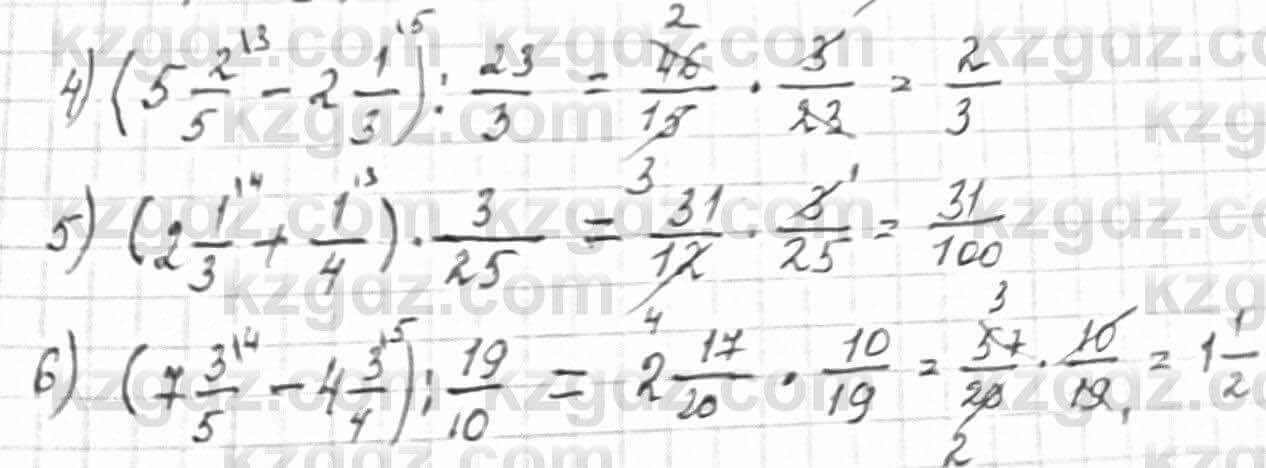 4) (5 2/5 \3 - 2 1/3 \5) : 23/3 = 46/15 · 3/23 = 2/3
5) (2 1/3 \4 + 1/4 \3) · 3/25 = 31/12 · 3/25 = 31/100
6) (7 3/5 \4 - 4 3/4 \5) : 19/10 = 2 17/20 · 10/19 = 57/20 · 10/19 = 1 1/2
kzgdz.com